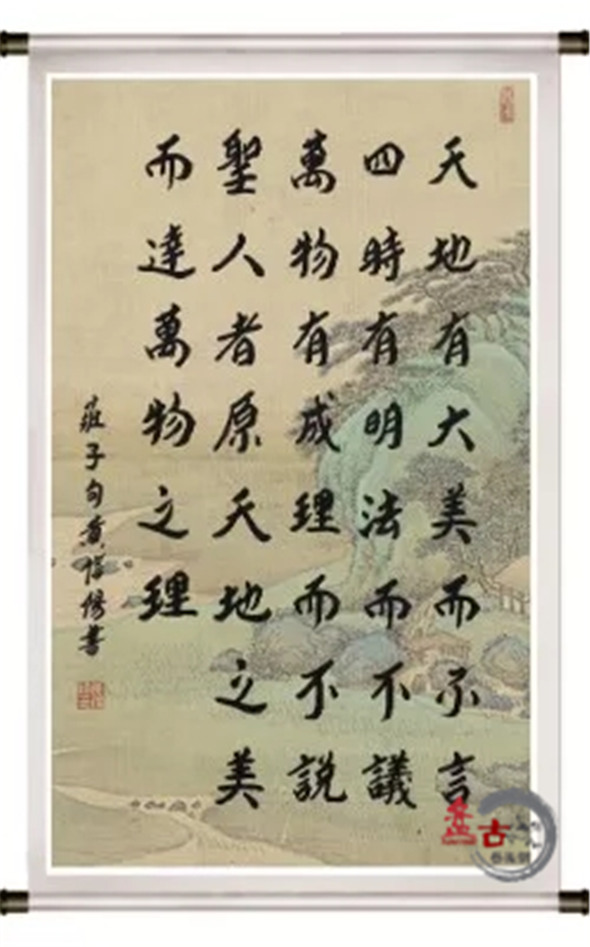 天地有大美而不言
四時有明法而不議
萬物有成理而不說
聖人者原天地之美
而達萬物之理
莊子句黃
書
古